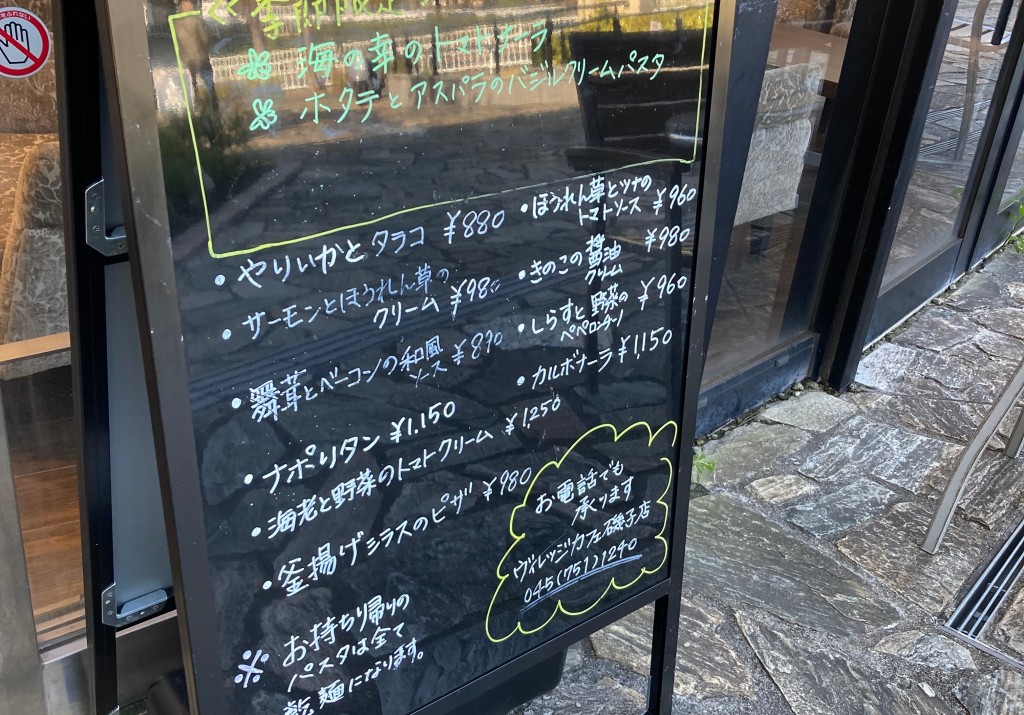 季節限定
海の幸のトマトナーラ
ホタテとアスパラのバジルクリームパスタ
・やりいかとタラコ ¥880
・サーモンとほうれん草の
クリーム ¥980
・舞茸とベーコンの和風
ソース ¥890
・ナポリタン ¥1,150
・海老と野菜のトマトクリーム ¥1,250
・釜揚げシラスのピザ ¥980
・ほうれん草とツナの
トマトソース ¥960
・きのこの
醤油
クリーム ¥980
・しらすと野菜の
ペペロンチーノ ¥960
・カルボナーラ ¥1,150
お電話でも
承ります
ヴィレッジカフェ磯子店
045(751)1240
※お持ち帰りの
パスタは全て
乾麺になります。